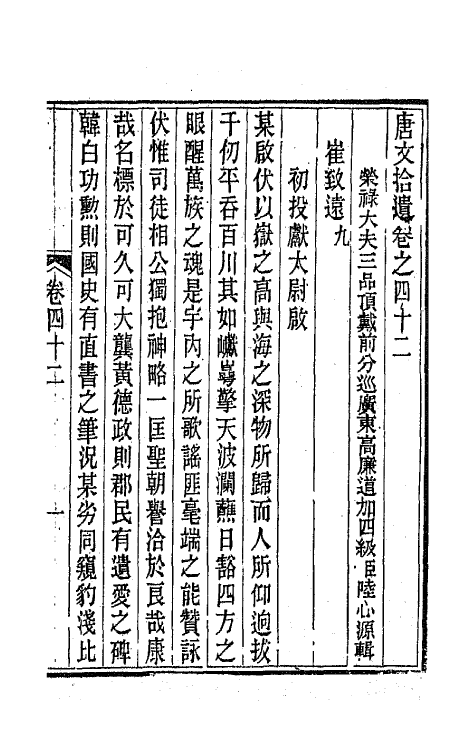 唐文拾遺卷之四十二
榮祿大夫三品頂戴前分巡廣東高廉道加四級臣陸心源輯
崔致遠九
初投獻太尉啟
某啟伏以嶽之高與海之深物所歸而人所仰迥拔
千仞平吞百川其如巘崿擎天波瀾蘸日豁四方之
眼醒萬族之魂是宇內之所歌謠匪毫端之能贊詠
伏惟司徒相公獨抱神略一匡聖朝譽洽於良哉康
哉名標於可久可大龔黃德政則郡民有遺愛之碑
韓白功勳則國史有直書之筆況某劣同窺豹淺比
卷四十二
一